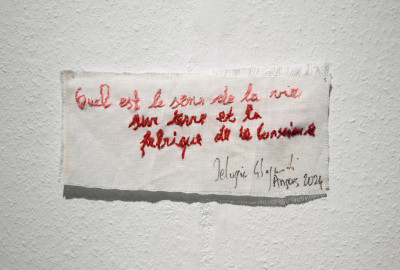 Quel est le sens de la vie
sur terre et la
fabrique de la conscience
Angers 2024